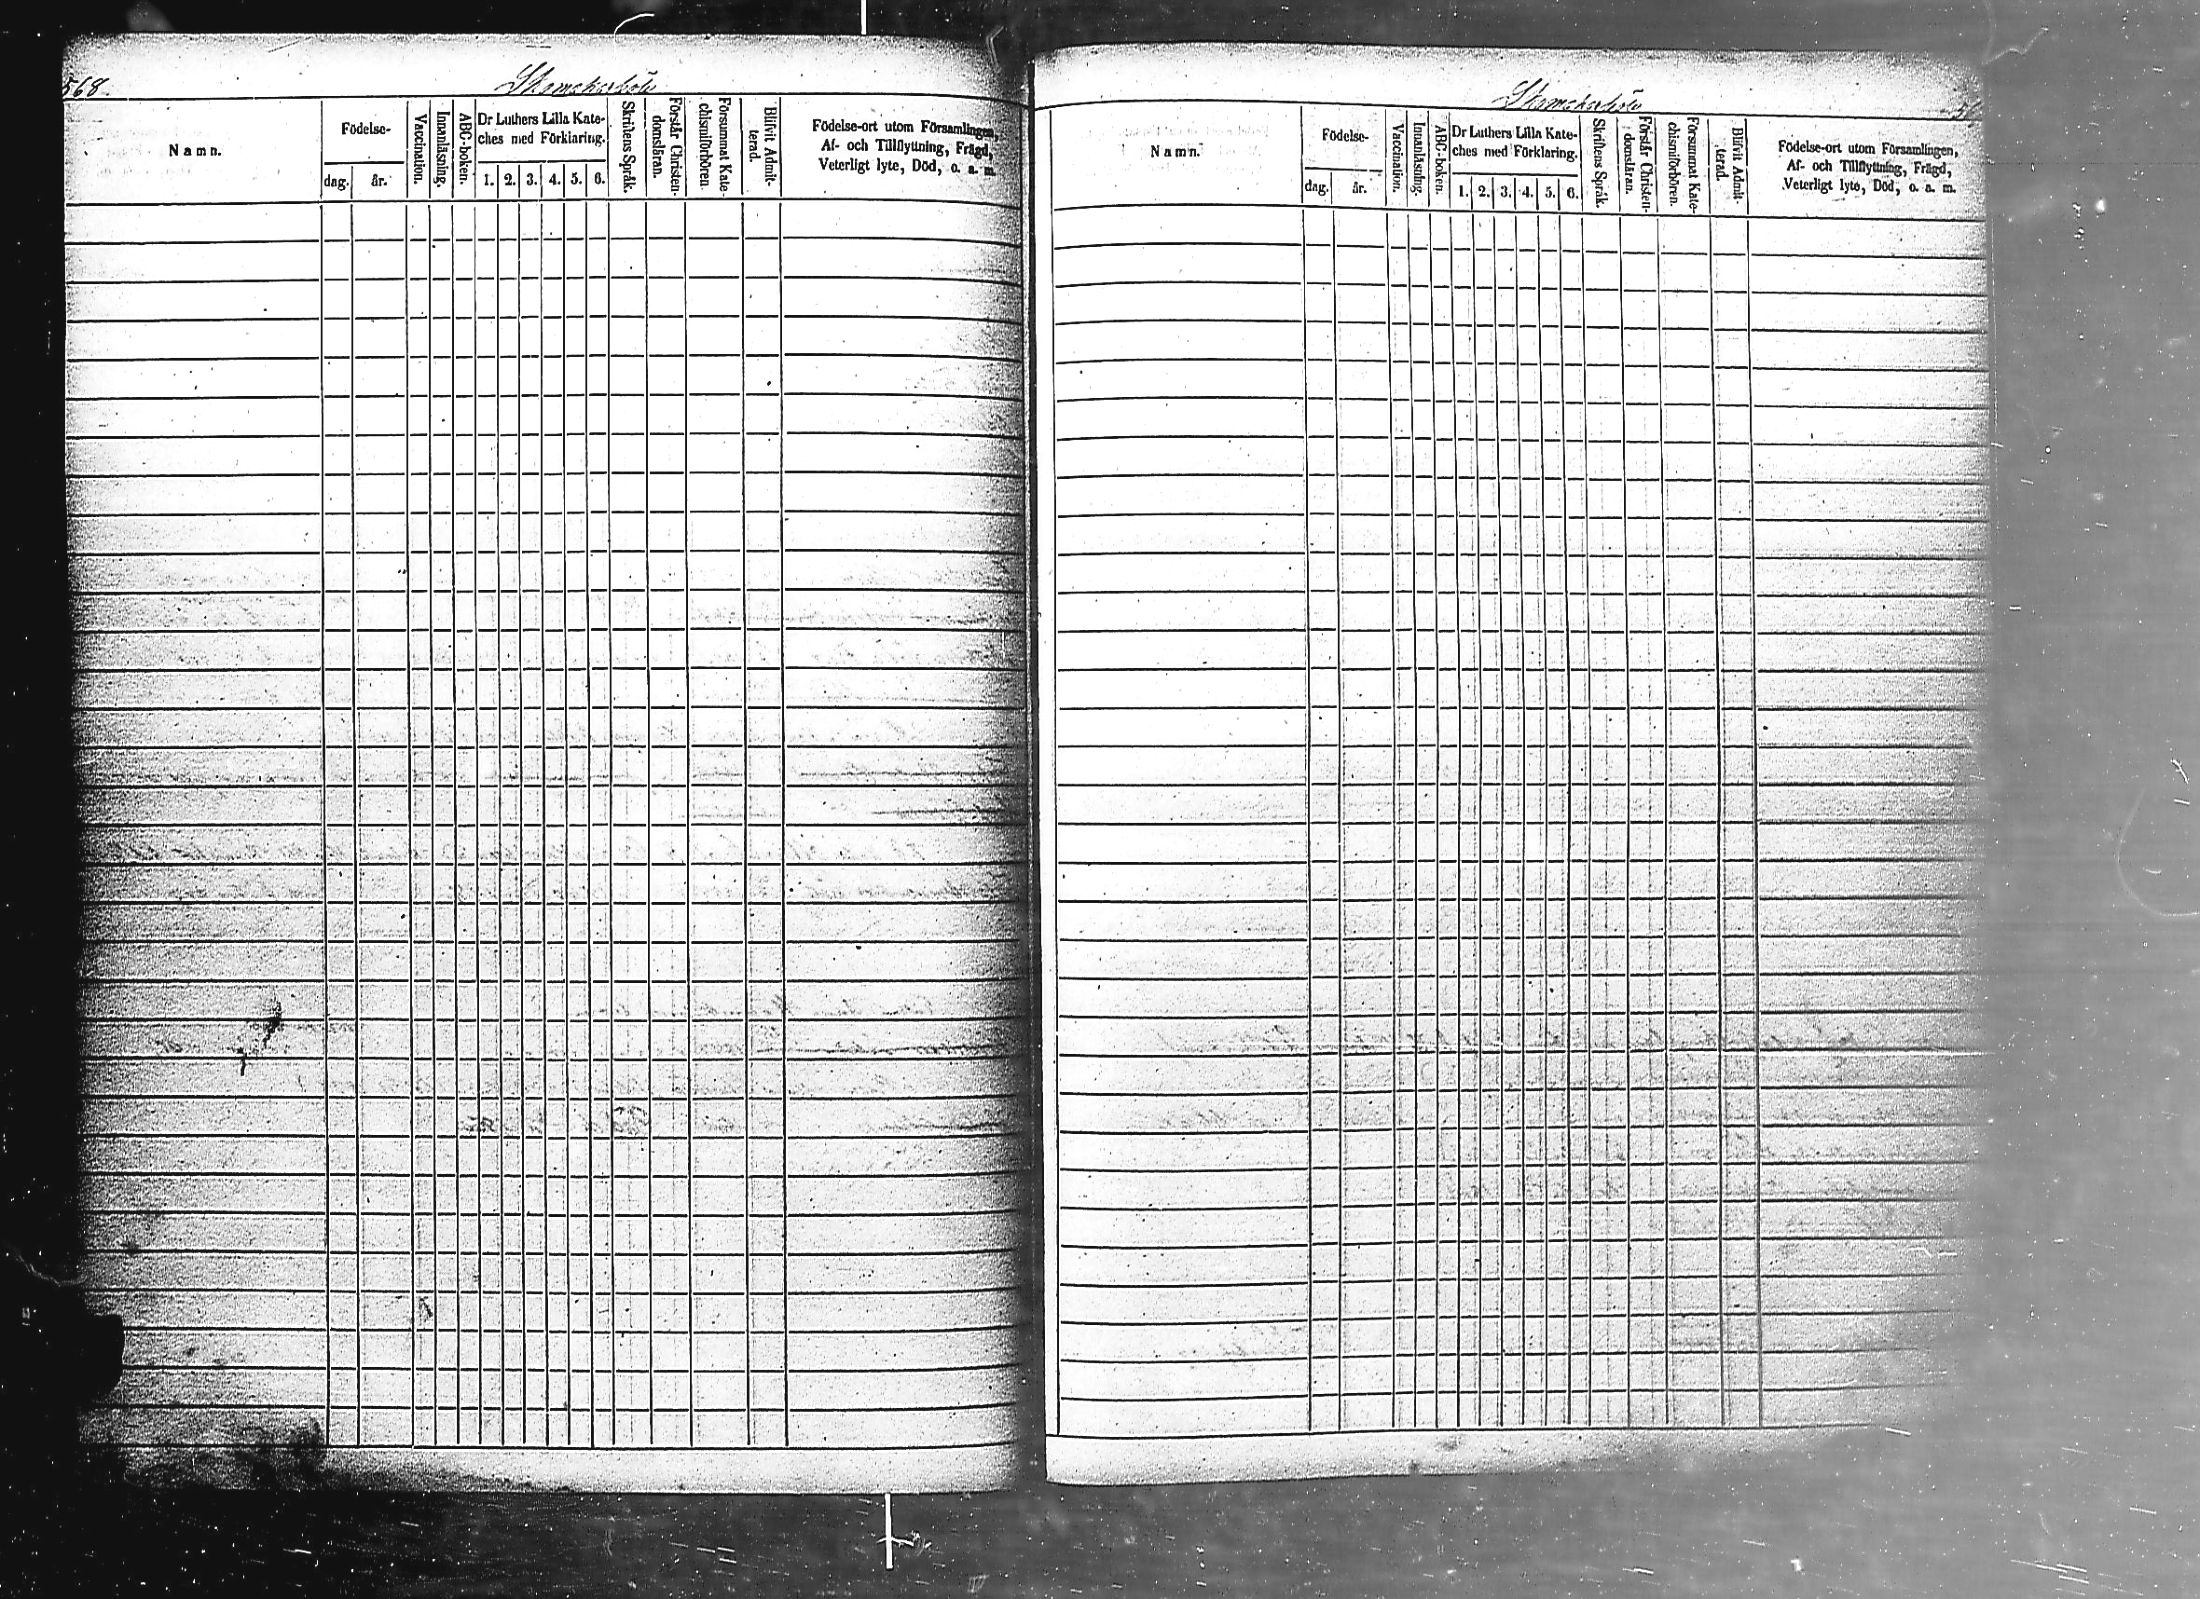 568.
Namn.
Födelse-
dag.
år.
Vaccination.
Innanläsning.
ABC-boken.
Dr Luthers Lilla Kate-
ches med Förklaring.
1. 2. 3. 4. 5. 6.
Skriftens Språk.
Förstår Christen-
domsläran.
Försummat Kate-
chismiförhören.
Blifvit Admit-
terad.
Födelse-ort utom Församlingen,
Af- och Tillflyttning, Frägd,
Veterligt lyte, Död, o. a. m.
Namn.
Födelse-
dag.
år.
Vaccination.
Innanläsning.
ABC-boken.
Dr Luthers Lilla Kate-
ches med Förklaring.
1. 2. 3. 4. 5. 6.
Skriftens Språk.
Förstår Christen-
domsläran.
Försummat Kate-
chismiförhören.
Blifvit Admit-
terad.
Födelse-ort utom Församlingen,
Af- och Tillflyttning, Frägd,
Veterligt lyte, Död, o. a. m.